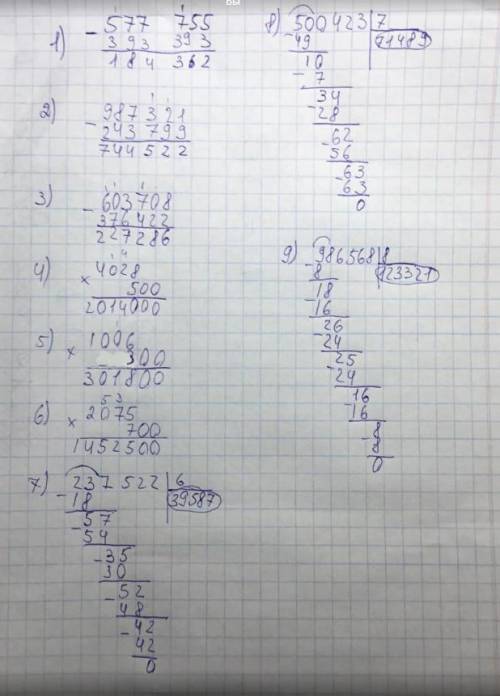 вы
1) - 577 755
393 393
184 362
2) - 987 321
243 799
744 522
3) - 603 708
376 422
227 286
4) × 4028
500
2014000
5) × 1006
300
301800
6) × 2075
700
1452500
7) - 237 522 | 6
18 | 39587
- 57
54
- 35
30
- 52
48
- 42
42
0
8) - 500423 | 7
49 | 71489
10
- 7
34
- 28
- 62
56
- 63
- 63
0
9) - 986568 | 8
8 | 123321
18
- 16
26
- 24
25
- 24
16
- 16
8
- 8
0